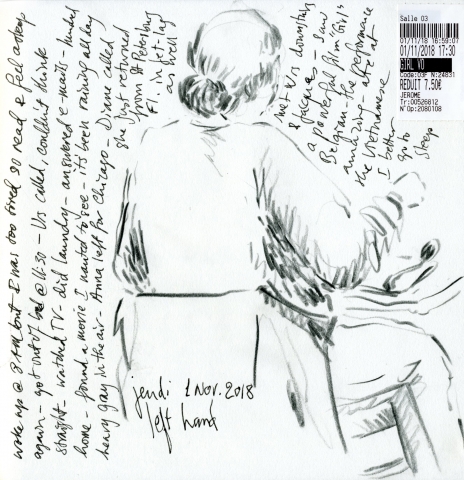 woke up @ 8 AM but I was too tired so read & feel asleep
again - got out of bed @ 11:30 - Us called, couldn't think
straight - watched TV - did laundry - answered e-mails -
home - found a movie I wanted to see - it's been raining all day
heavy gray in the air - Anna left for Chicago - Diane called
she just returned
from St Petersburg
in jet lag
as well
met Us downstairs
& Jacques - saw
a powerful film 'Girl'
Belgian - the performance
amazing - ate at
the Vietnamese
I better
go to
sleep
Salle 03
01/11/18 16:59:07
01/11/2018 17:30
GIRL VO
Code:03F N:24831
REDUIT 7.50€
JEROME
Tr:00526612
N°Op:2080108
jeudi 1 Nov. 2018
left hand